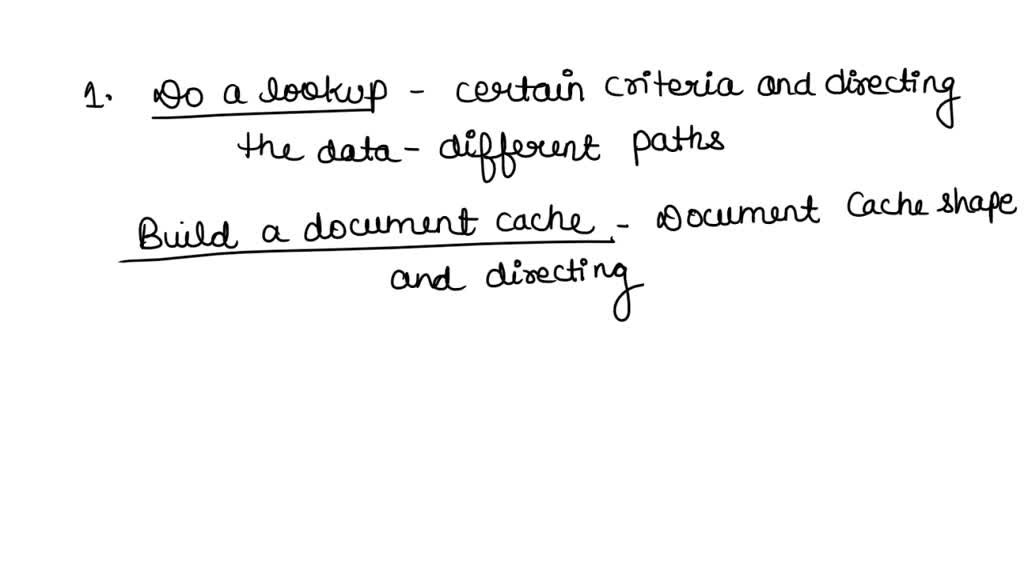 1. Do a lookup - certain criteria and directing
the data - different paths
Build a document cache - Document Cache shape
and directing